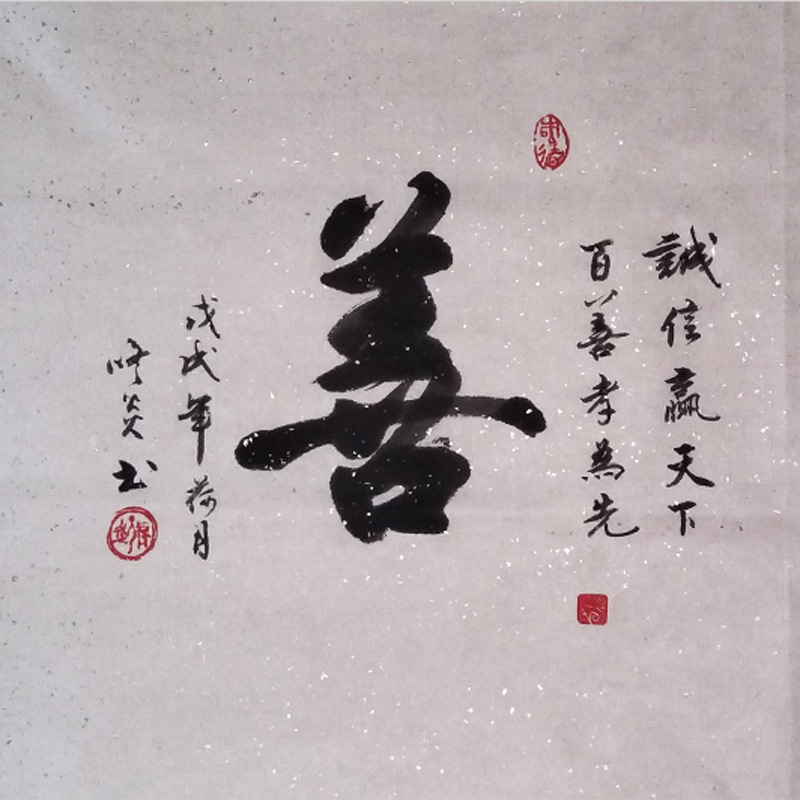 誠信贏天下
百善孝為先
善
戊戌年荷月
炎書